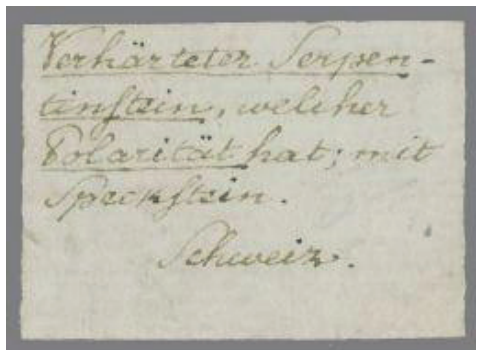 Verhärteter Serpen-
tinſtein, welcher
Polarität hat; mit
Speckſtein.
Schweiz.